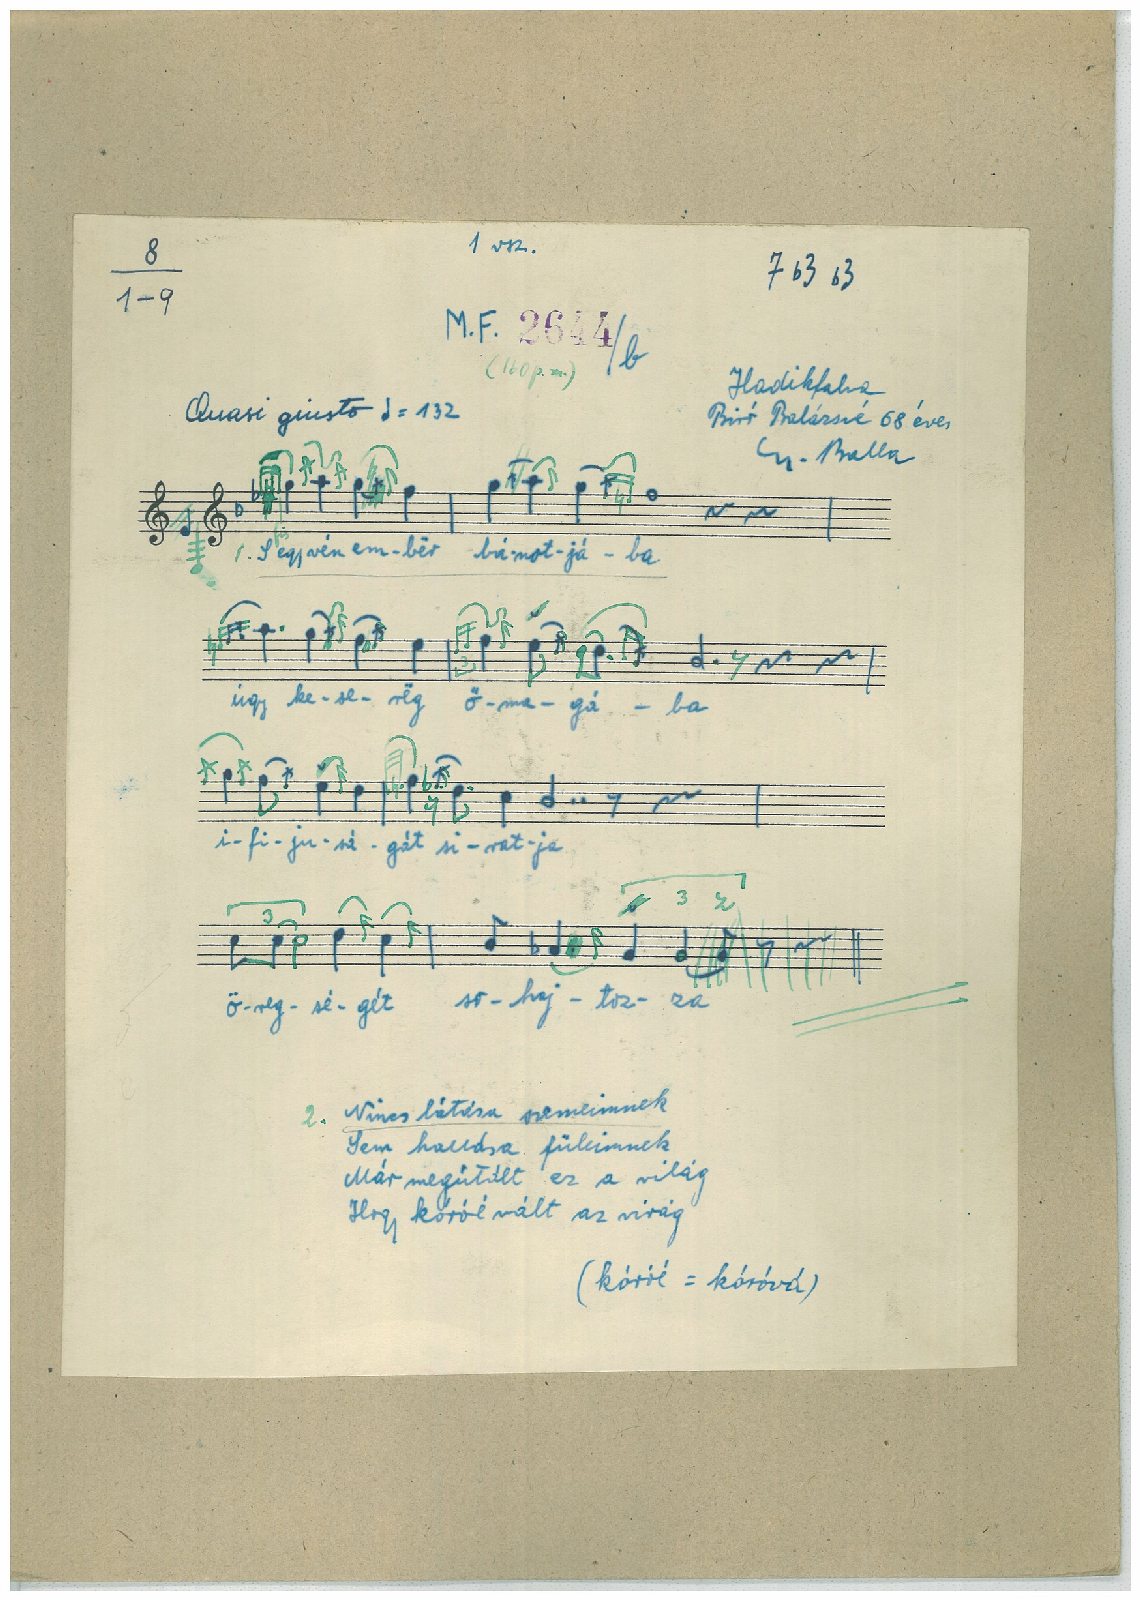 8
1-9
1 vsz.
7 b3 b3
M.F. 2644/b
(160 p.m.)
Hadikfalva
Quasi giusto = 132
Biró Balázsné 68 éves
Gy. Balla
1. S egy vén em-bër bá-nat-já-ba
úgy ke-se-rëg ö-ma-gá-ba
i-fi-ju-sá-gát si-rat-ja
3
ö-reg-sé-gét so-haj-toz-za
2. Nincs látása szemeimnek
Sem hallása füleimnek
Már megútált ez a világ
Hogy kóróé vált az virág
(kóróé = kóróvá)